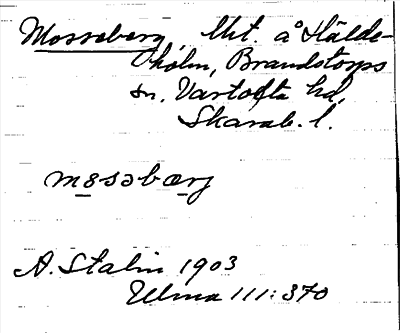 Mosseberg, lht. å Hälde-
holm, Brandstorps
sn. Vartofta hd,
Skarab. l.
mo̲səbæ̲rj
A. Stalin 1903
Ulma 111:370